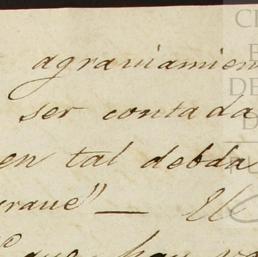 agraviamien
ser contada
en tal debda
grave" —
que han